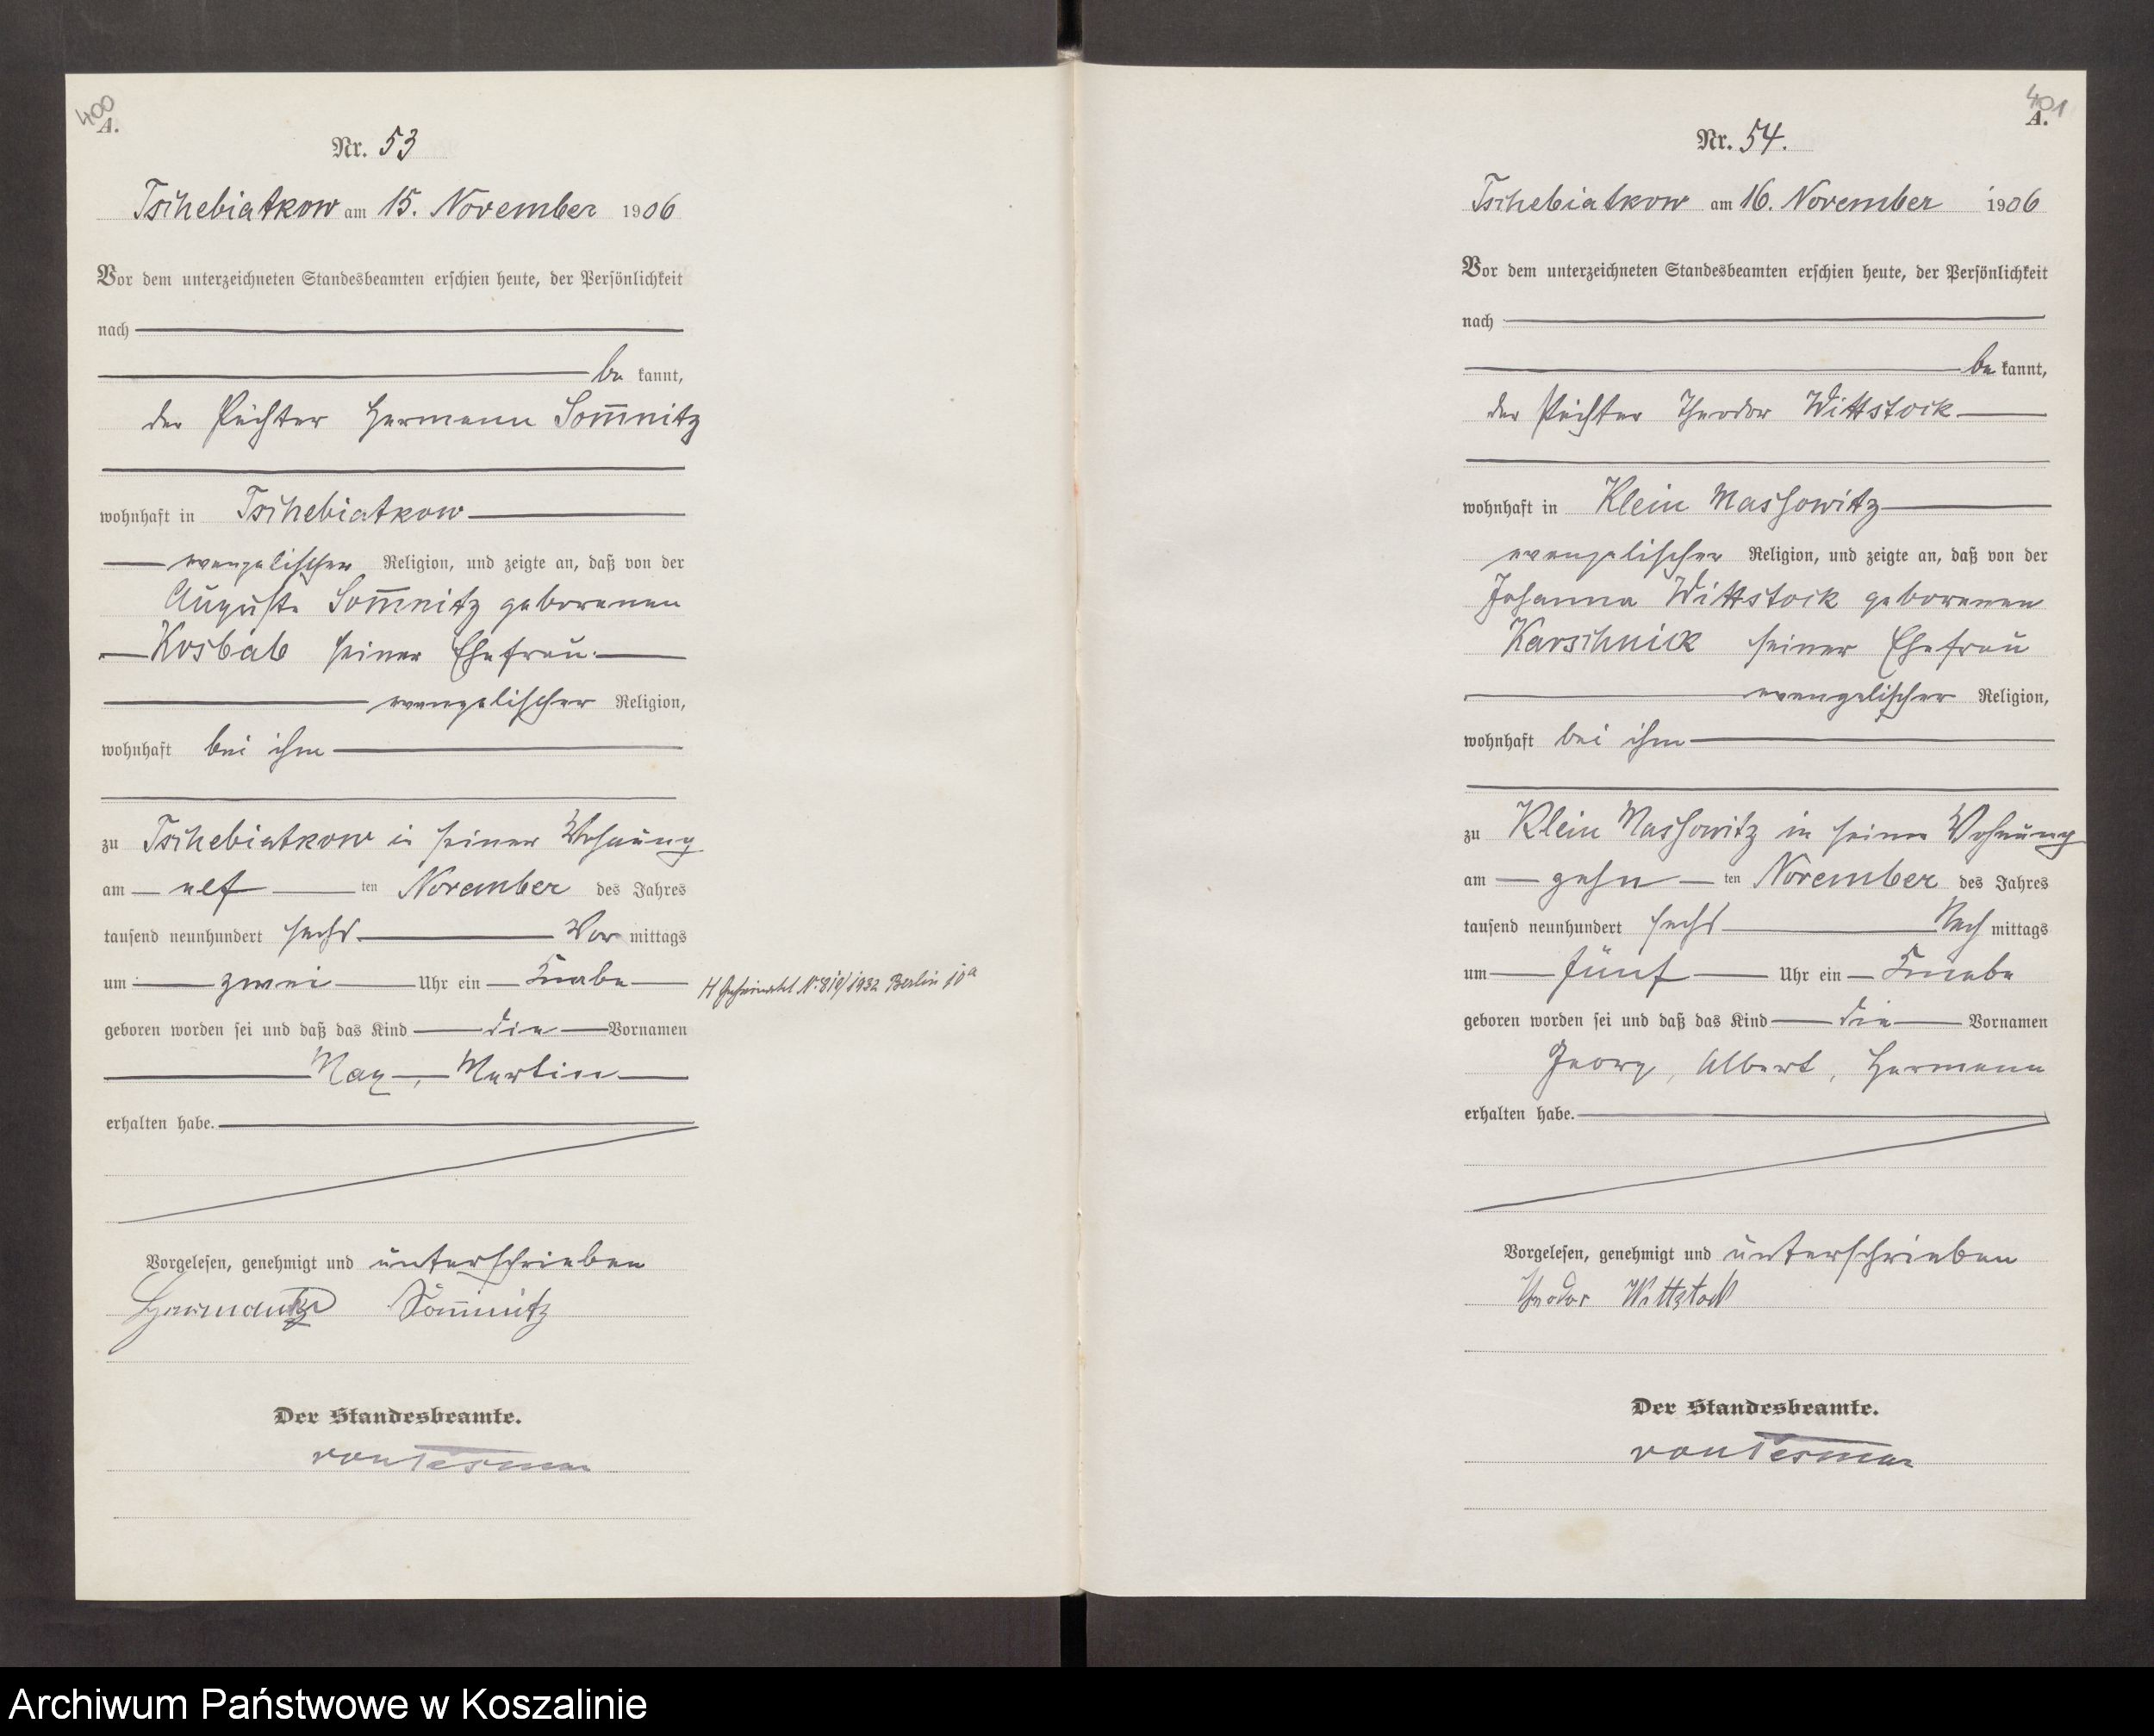 400
A.
Nr. 53
Tschebiatkow am 15. November 1906
Vor dem unterzeichneten Standesbeamten erschien heute, der Persönlichkeit
nach
be kannt,
der Pächter Hermann Som̅nitz
wohnhaft in Tschebiatkow
evangelischer Religion, und zeigte an, daß von der
Auguste Som̅nitz geborenen
Kosbab seiner Ehefrau
evangelischer Religion,
wohnhaft bei ihm
zu Tschebiatkow in seiner Wohnung
am elf ten November des Jahres
tausend neunhundert sechs Vor mittags
um zwei Uhr ein Knabe
H 1932 Berlin 10a
geboren worden sei und daß das Kind die Vornamen
Max, Martin
erhalten habe.
Vorgelesen, genehmigt und unterschrieben
Som̅nitz
Der Standesbeamte.
von Tesmar
401
A.
Nr. 54.
Tschebiatkow am 16. November 1906
Vor dem unterzeichneten Standesbeamten erschien heute, der Persönlichkeit
nach
be kannt,
der Pächter Theodor Wittstock
wohnhaft in Klein Massowitz
evangelischer Religion, und zeigte an, daß von der
Johanna Wittstock geborenen
Karschnick seiner Ehefrau
evangelischer Religion,
wohnhaft bei ihm
zu Klein Massowitz in seiner Wohnung
am zehn ten November des Jahres
tausend neunhundert sechs Nach mittags
um fünf Uhr ein Knabe
geboren worden sei und daß das Kind die Vornamen
Georg, Albert, Hermann
erhalten habe.
Vorgelesen, genehmigt und unterschrieben
Theodor Wittstock
Der Standesbeamte.
von Tesmar
Archiwum Państwowe w Koszalinie